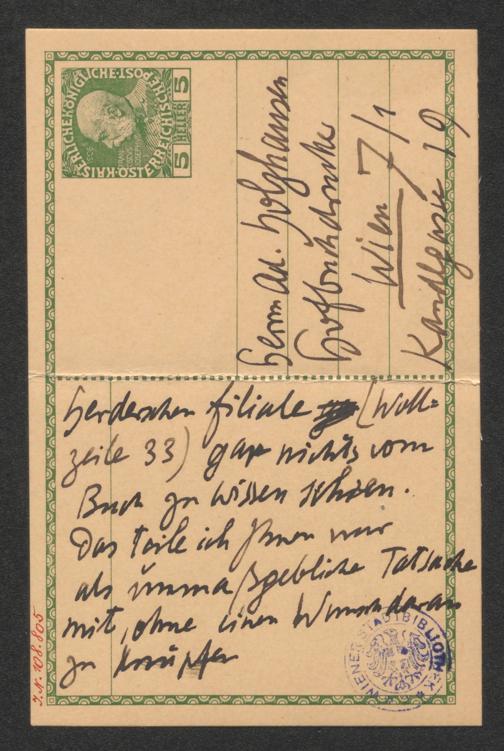 KAISERLICHE·KÖNIGLICHE·POST
ÖSTERREICHISCHE
5 HELLER 5
Herrn Ad. Holzhausen
Hofbuchdrucker
Wien 7/1
Kandlgasse 19
Herderschen Filiale (Woll-
zeile 33) gar nichts vom
Buch zu wissen schien.
Das teile ich Ihnen nur
als unmaßgebliche Tatsache
mit, ohne einen Wunsch daran
zu knüpfen
J.N. 108.805
WIENER STADTBIBLIOTHEK